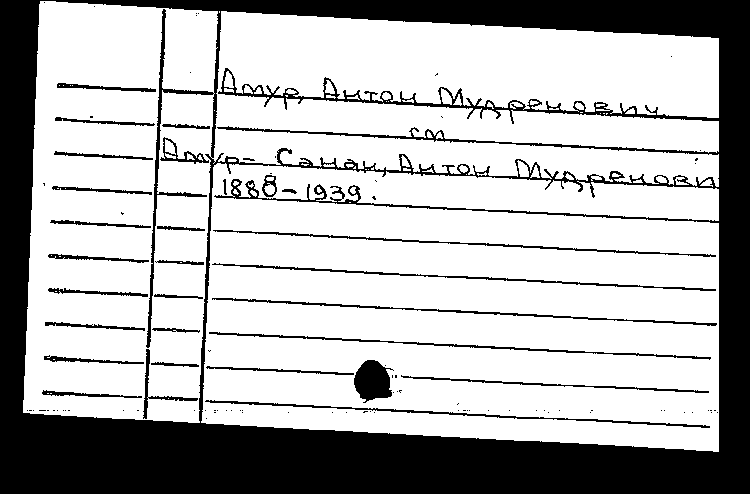 Амур, Антон Мудренович.
см
Амур-Санан, Антон Мудренови
1888-1939.